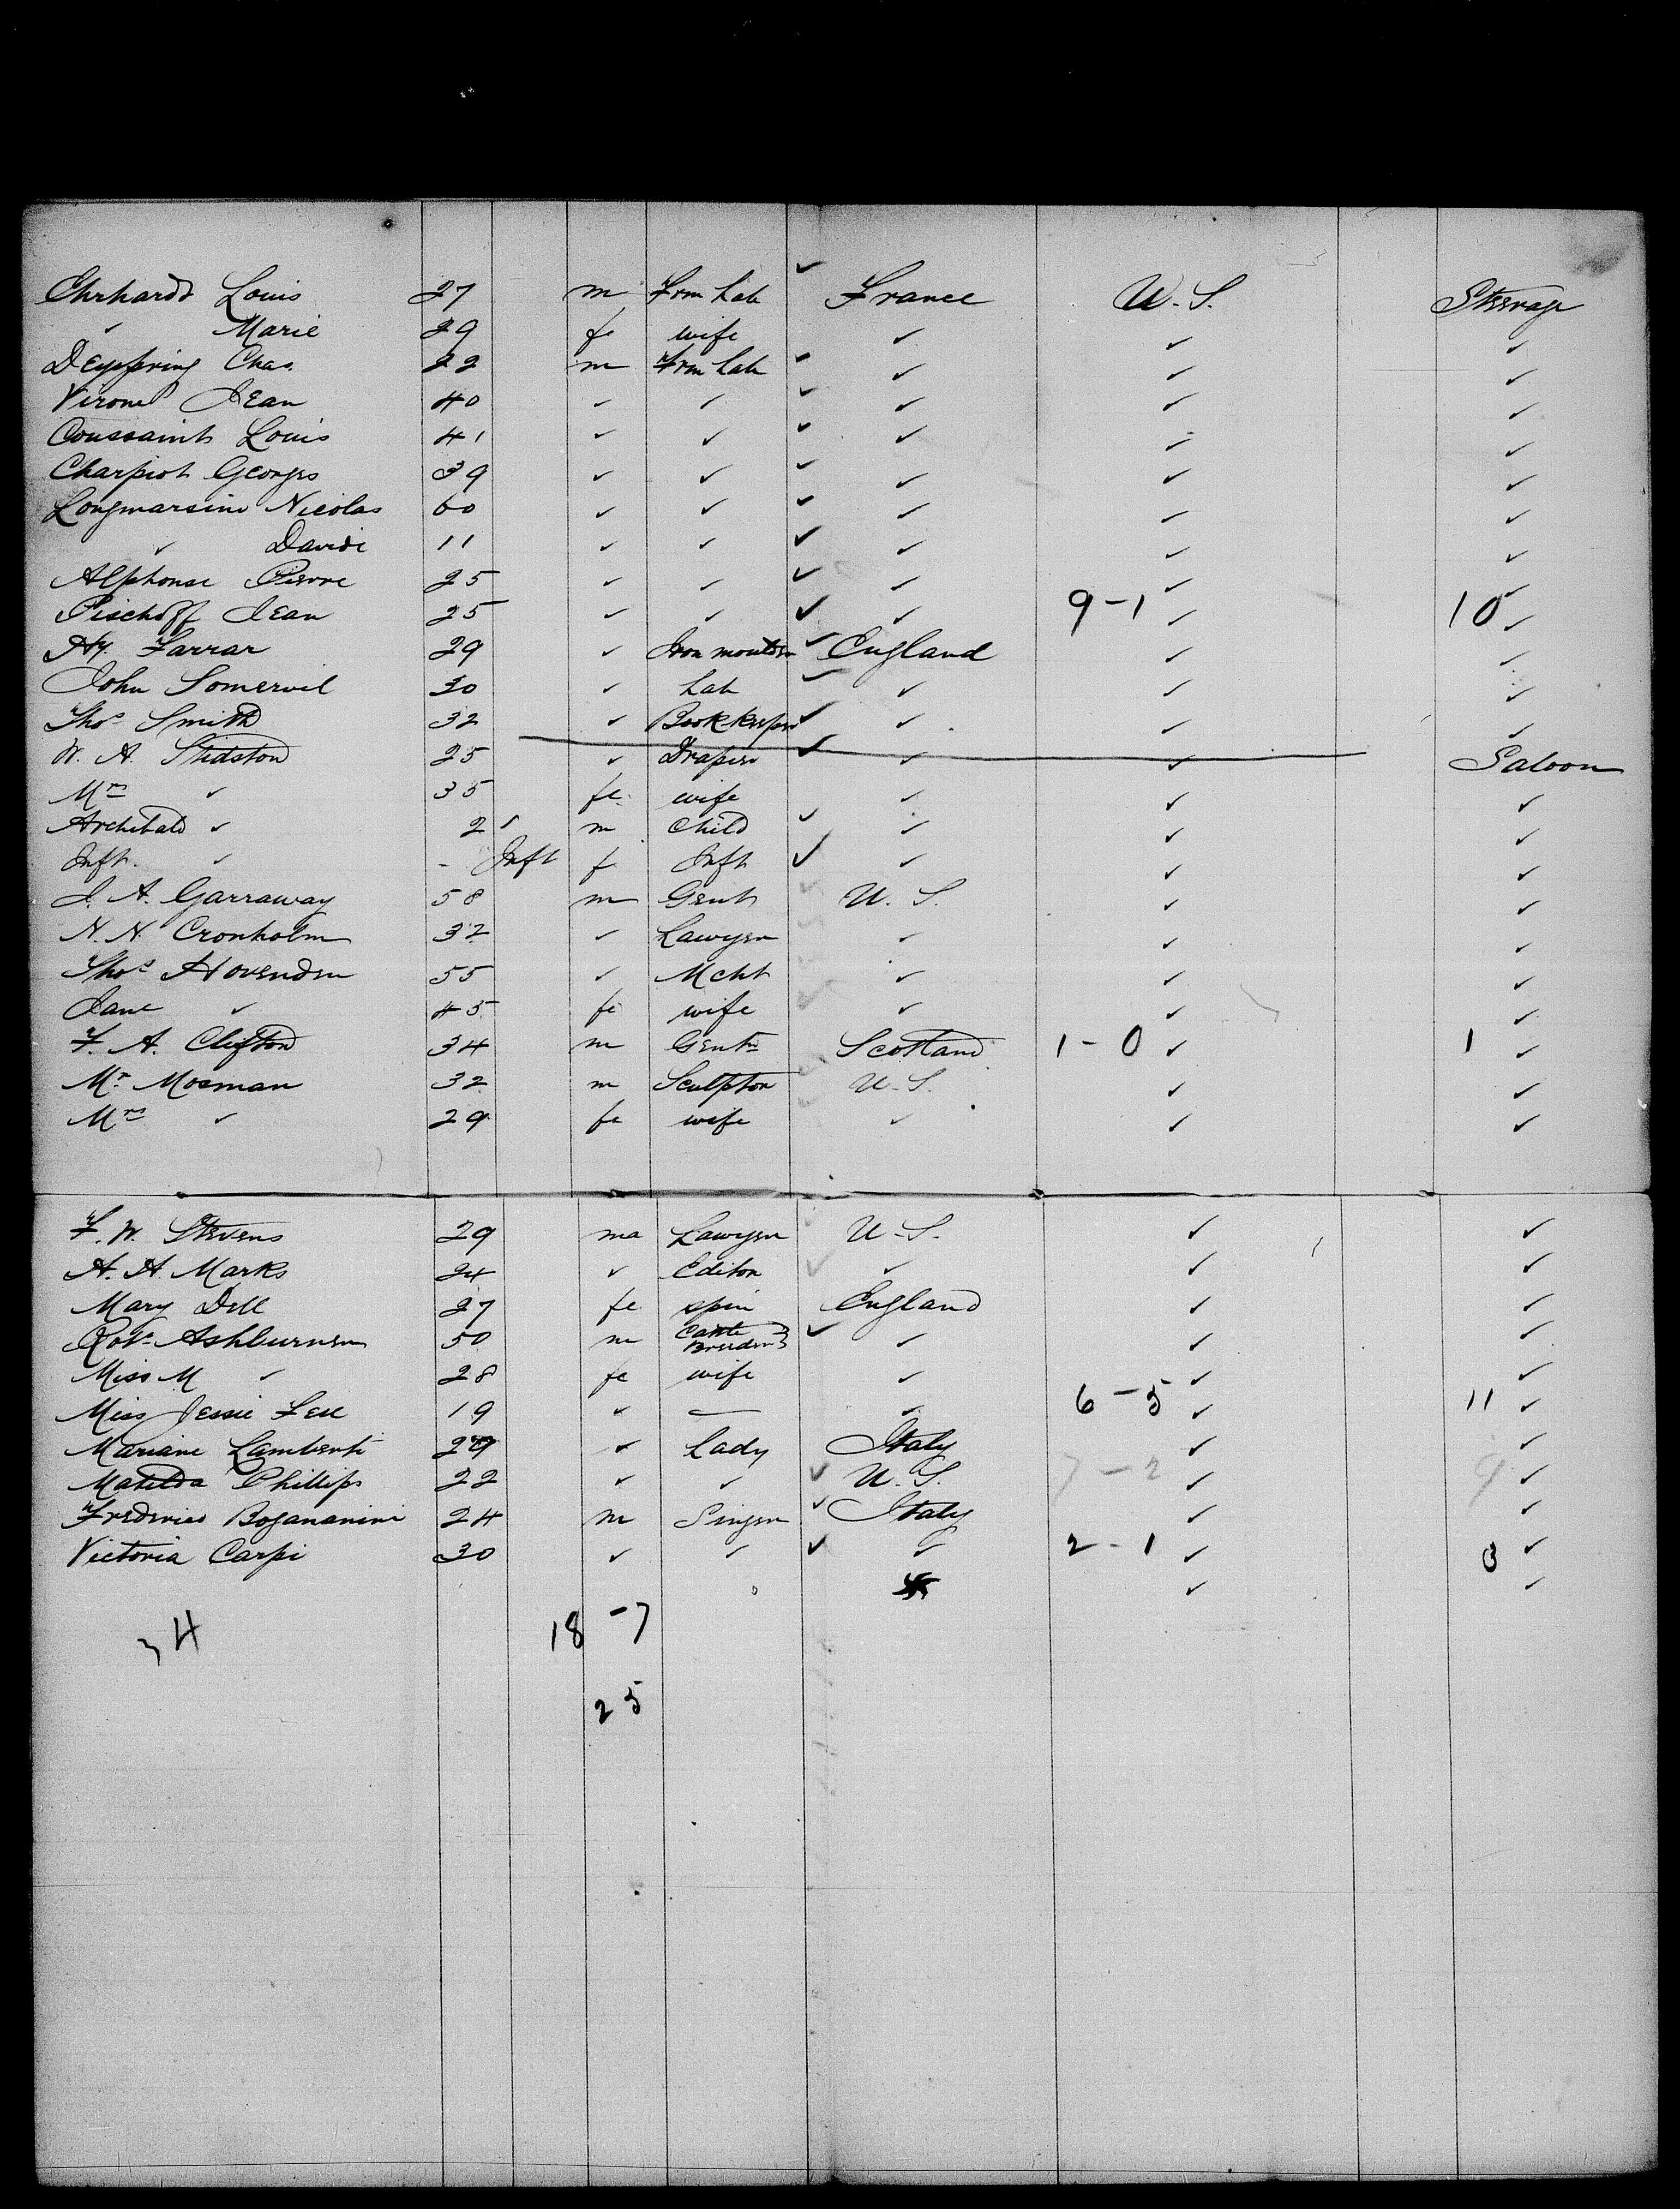 Ehrhardt Louis 27 m Frm Lab ✓ France U.S. Steerage
✓ Marie 29 fe wife ✓ ✓ ✓
Chas. 22 m Frm Lab ✓ ✓ ✓ ✓
Jean 40 ✓ ✓ ✓ ✓ ✓ ✓
Coussaint Louis 41 ✓ ✓ ✓ ✓ ✓ ✓
Charpiot Georges 39 ✓ ✓ ✓ ✓ ✓ ✓
Longmarsino Nicolas 60 ✓ ✓ ✓ ✓ ✓ ✓
✓ Davide 11 ✓ ✓ ✓ ✓ ✓ ✓
Alphonse Pierre 25 ✓ ✓ ✓ ✓ ✓ ✓
Pischoff Jean 25 ✓ ✓ ✓ ✓ 9-1 ✓ 10 ✓
Hy. Farrar 29 ✓ Iron moulder ✓ England ✓ ✓
John Somervil 30 ✓ Lab ✓ ✓ ✓ ✓
Thos Smith 32 ✓ Book Keeper ✓ ✓ ✓ ✓
W. A. Stidston 25 ✓ Draper ✓ ✓ ✓ Saloon
Mrs ✓ 35 fe wife ✓ ✓ ✓
Archibald ✓ 2 ✓ m Child ✓ ✓ ✓ ✓
Inft. ✓ - Inft f Inft ✓ ✓ ✓ ✓
J. A. Garraway 58 m Gent ✓ U. S. ✓ ✓
N. N. Cronholm 32 ✓ Lawyer ✓ ✓ ✓
Thos Hovenden 55 ✓ Mcht ✓ ✓ ✓
Jane ✓ 45 fe wife ✓ ✓ ✓ ✓
F. A. Clifton 34 m Gentn Scotland 1-0 ✓ 1 ✓
Mr Mosman 32 m Sculptor U-S. ✓ ✓
Mrs ✓ 29 fe wife ✓ ✓ ✓
F. W. Stevens 29 ma Lawyer U-S. ✓ ✓
A. A. Marks 24 ✓ Editor ✓ ✓ ✓ ✓
Mary Dell 27 fe spin England ✓ ✓
Robt Ashburner 50 m Cattle Breeder ✓ ✓ ✓ ✓
Miss M ✓ 28 fe wife ✓ ✓ ✓
Miss Jessie 19 ✓ — ✓ 6-5 ✓ 11 ✓
Mariane Lamberti 29 ✓ Lady Italy ✓ ✓
Matilda Phillips 22 ✓ ✓ ✓ U.S. 7-2 ✓ 9 ✓
Frederico Bogananini 24 m Singer ✓ Italy ✓ ✓
Victoria Carpi 30 ✓ ✓ ✓ ✓ 2-1 ✓ 3 ✓
✓ ✓
34 18-7
25